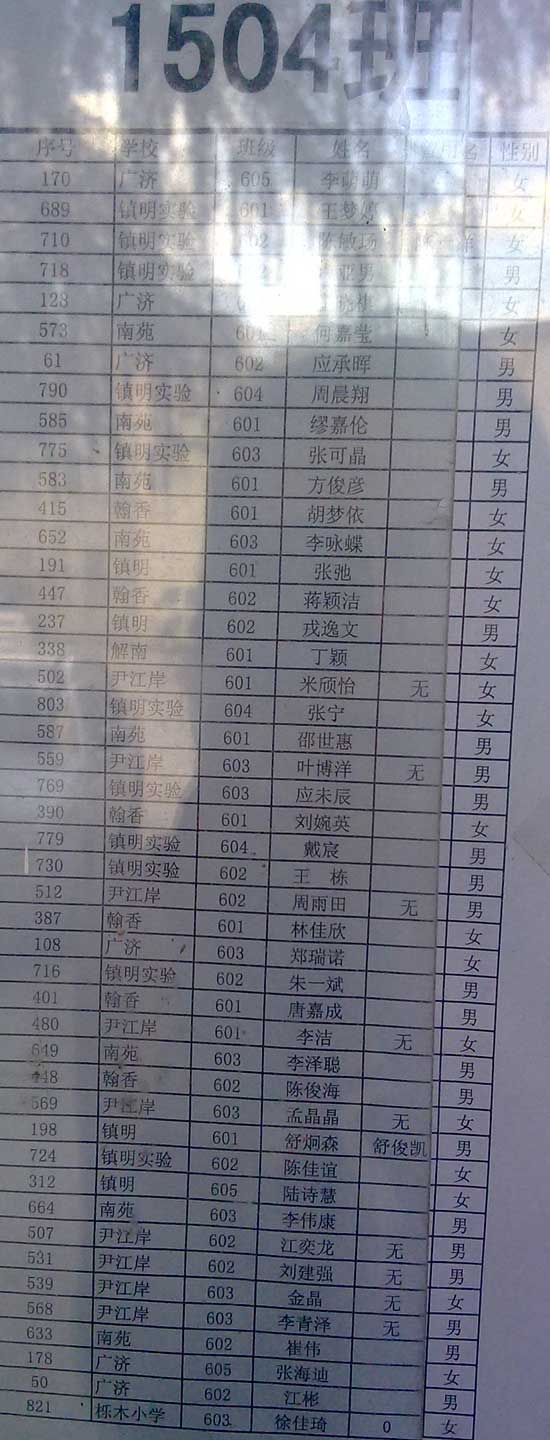 1504班
序号 学校 班级 姓名 性别
170 广济 605 李萌萌 女
689 镇明实验 601 王梦婷 女
710 镇明实验 602 陈敏场 女
718 镇明实验 亚男 男
123 广济 女
573 南苑 601 何嘉莹 女
61 广济 602 应承晖 男
790 镇明实验 604 周晨翔 男
585 南苑 601 缪嘉伦 男
775 镇明实验 603 张可晶 女
583 南苑 601 方俊彦 男
415 翰香 601 胡梦依 女
652 南苑 603 李咏蝶 女
191 镇明 601 张弛 女
447 翰香 602 蒋颖洁 女
237 镇明 602 戎逸文 男
338 解南 601 丁颖 女
502 尹江岸 601 米颀怡 无 女
803 镇明实验 604 张宁 女
587 南苑 601 邵世惠 男
559 尹江岸 603 叶博洋 无 男
769 镇明实验 603 应未辰 男
390 翰香 601 刘婉英 女
779 镇明实验 604 戴宸 男
730 镇明实验 602 王 栋 男
512 尹江岸 602 周雨田 无 男
387 翰香 601 林佳欣 女
108 广济 603 郑瑞诺 女
716 镇明实验 602 朱一斌 男
401 翰香 601 唐嘉成 男
480 尹江岸 601 李洁 无 女
649 南苑 603 李泽聪 男
448 翰香 602 陈俊海 男
569 尹江岸 603 孟晶晶 无 女
198 镇明 601 舒炯森 舒俊凯 男
724 镇明实验 602 陈佳谊 女
312 镇明 605 陆诗慧 女
664 南苑 603 李伟康 男
507 尹江岸 602 江奕龙 无 男
531 尹江岸 602 刘建强 无 男
539 尹江岸 603 金晶 无 女
568 尹江岸 603 李青泽 无 男
633 南苑 602 崔伟 男
178 广济 605 张海迪 女
50 广济 602 江彬 男
821 栎木小学 603 徐佳琦 0 女